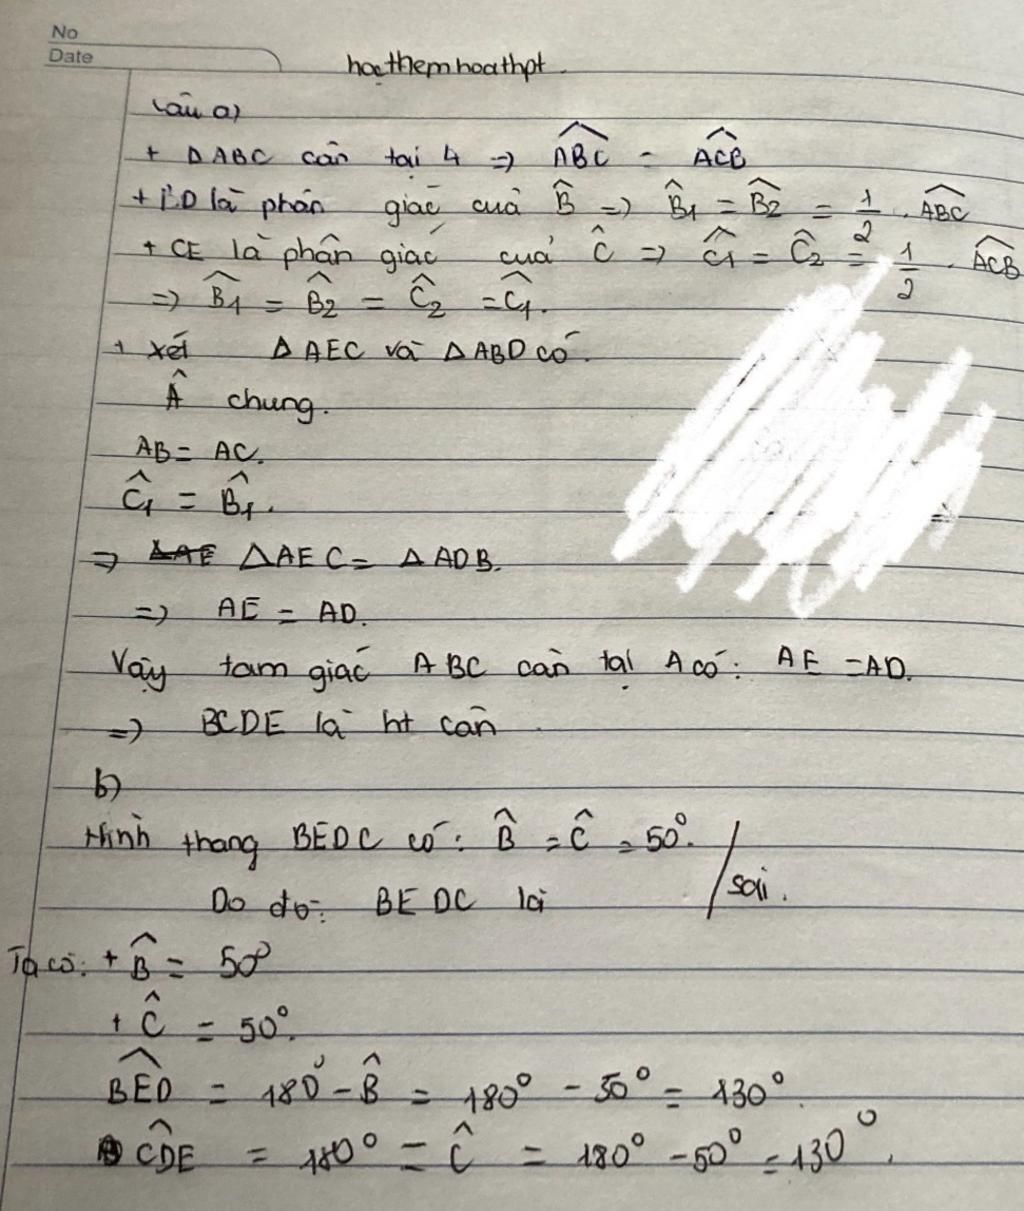 No
Date
hocthemhoathpt.
Câu a)
+ ΔABC cân tại A => \widehat{ABC} = \widehat{ACB}
+ BD là phân giác của \widehat{B} => \widehat{B}1 = \widehat{B2} = 1/2 . \widehat{ABC}
+ CE là phân giác của \widehat{C} => \widehat{C1} = \widehat{C}2 = 1/2 . \widehat{ACB}
=> \widehat{B1} = \widehat{B2} = \widehat{C2} = \widehat{C1}.
+ xét ΔAEC và ΔABD có.
\widehat{A} chung.
AB = AC.
\widehat{C}1 = \widehat{B}1.
=> ΔAEC = ΔADB.
=> AE = AD.
Vậy tam giác ABC cân tại A có: AE = AD.
=> BCDE là ht cân
b)
Hình thang BEDC có: \widehat{B} = \widehat{C} = 50°.
Do đó: BEDC là / sai.
Ta có: + \widehat{B} = 50°
+ \widehat{C} = 50°.
\widehat{BED} = 180° - \widehat{B} = 180° - 50° = 130°.
\widehat{CDE} = 180° - \widehat{C} = 180° - 50° = 130°.